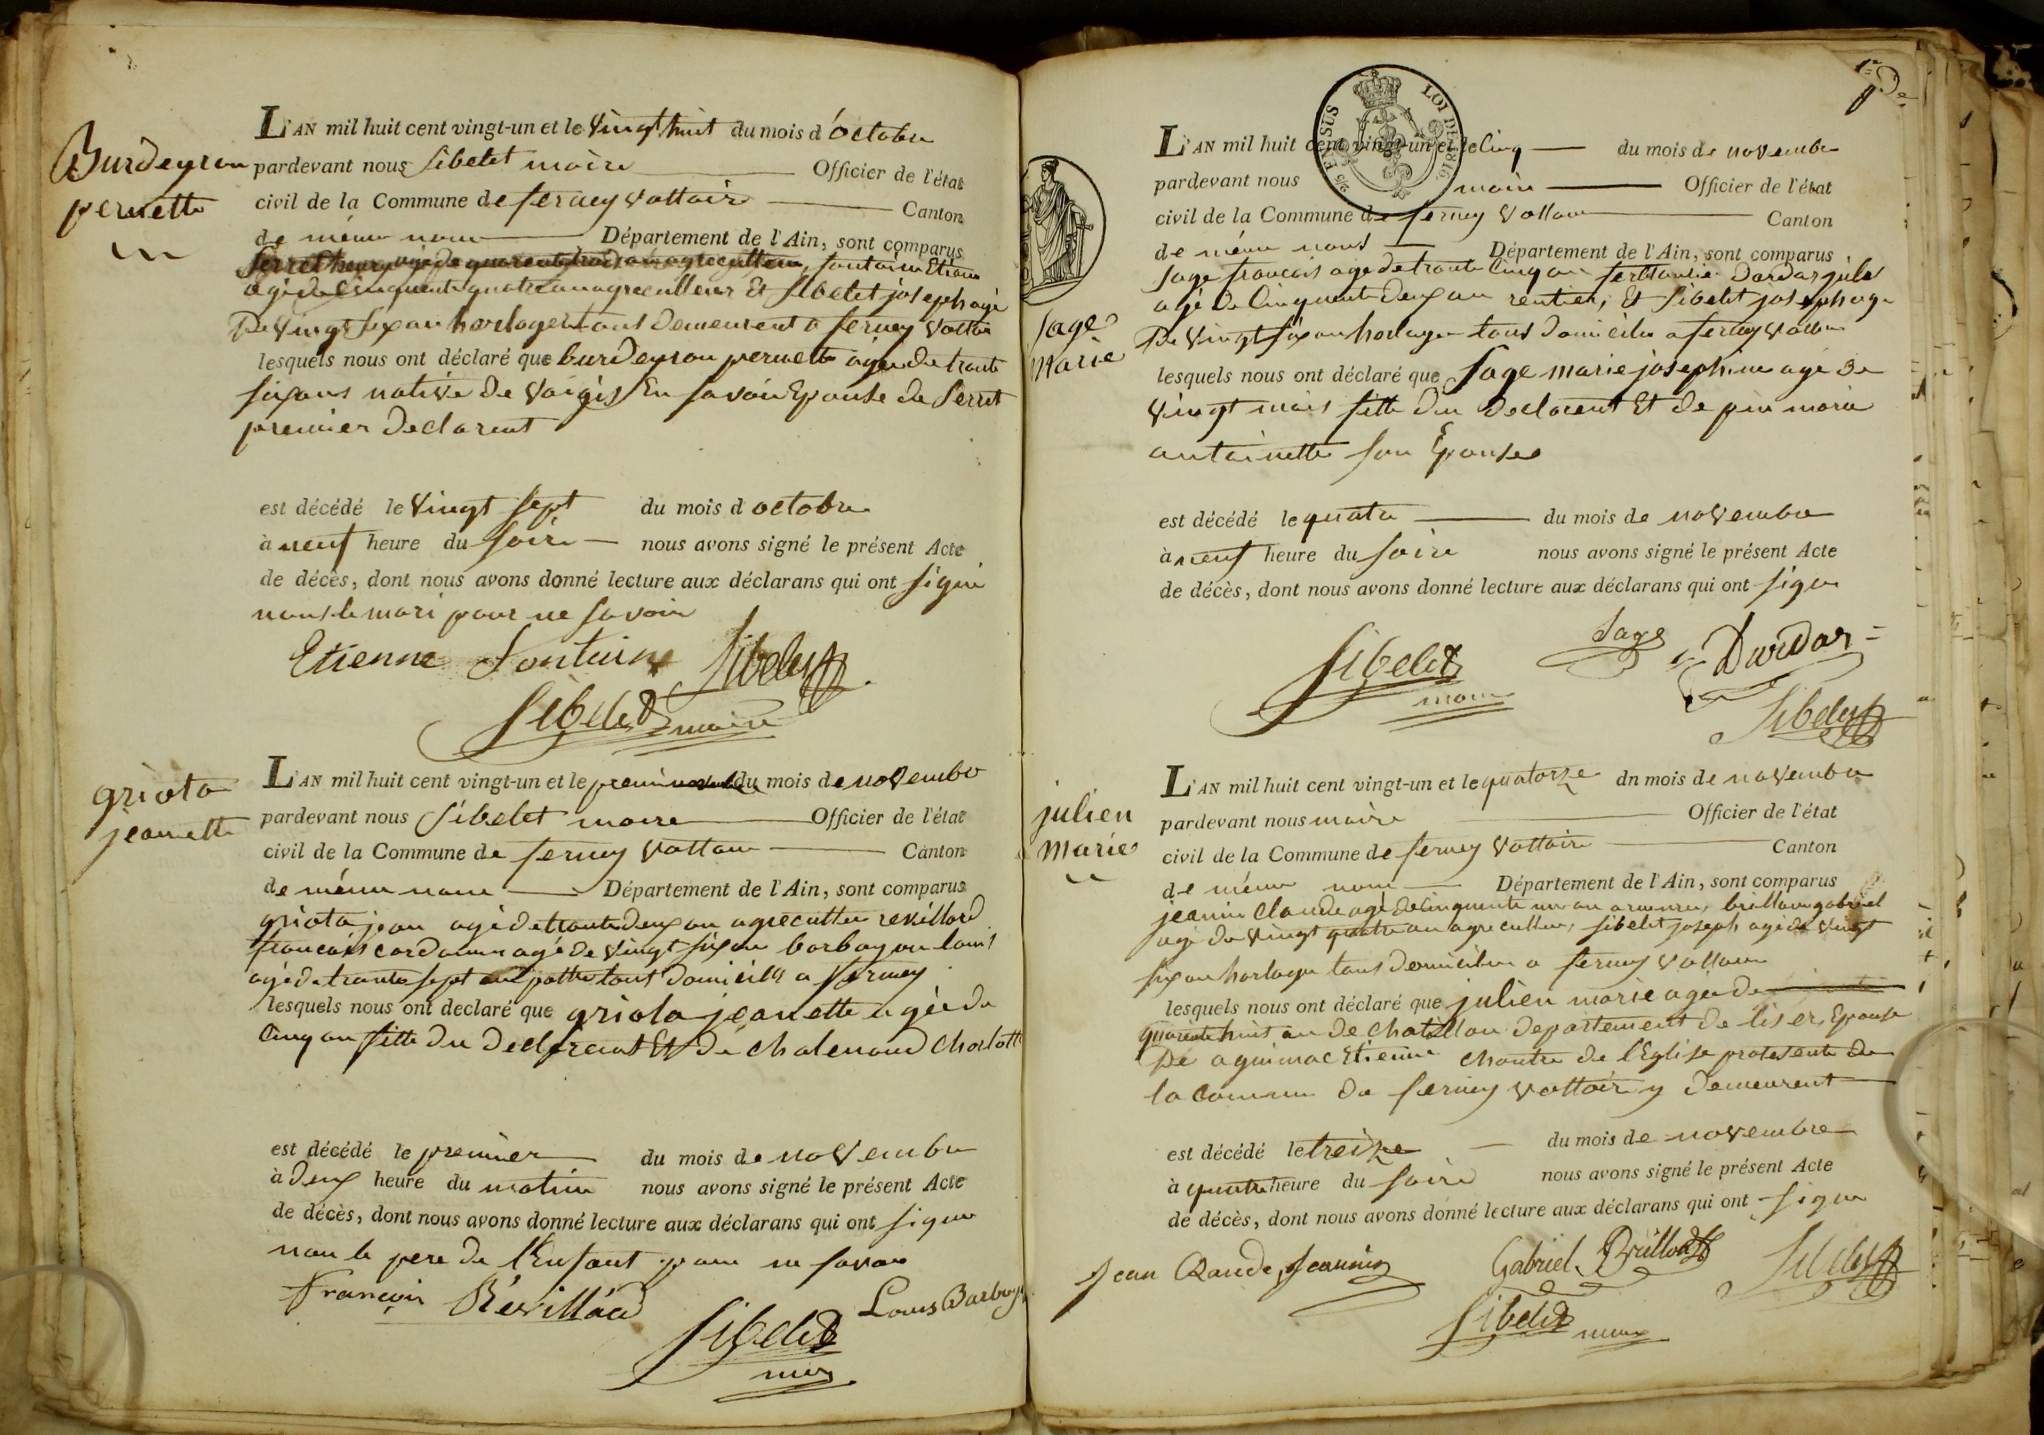 Burdeyron
pernette
L'AN mil huit cent vingt-un et le vingt huit du mois d'octobre
pardevant nous Sibelet maire Officier de l'état
civil de la Commune de ferney voltaire Canton
de même nom Département de l'Ain, sont comparus
Serret henry agé de quarente trois ans agreculteur, fontaine Etienne
agé de Cinquente quatre an agreculteur Et Sibelet joseph agé
De vingt six an horloger tous demeurent a ferney voltaire
lesquels nous ont déclaré que burdeyron pernette agée de trante
six ans native de en savoir Epouse de Serret
premier declarent
est décédé le vingt sept du mois d octobre
à neuf heure du soire nous avons signé le présent Acte
de décès, dont nous avons donné lecture aux déclarans qui ont signé
non le mari pour ne savoir
Etienne Fontaine Sibelet
Sibelet maire
griota
jeanette
L'AN mil huit cent vingt-un et le premier du mois de novembre
pardevant nous Sibelet maire Officier de l'état
civil de la Commune de ferney voltaire Canton
de même nom Département de l'Ain, sont comparus
griota jean agé de trante deux an agreculteur revillard
francois cordonnier agé de vingt six an barbay an louis
agé de trante sept ans tous domiciliés a ferney
lesquels nous ont declaré que griota jeanette agée de
Cinq an fille du declarent Et de chalenoud charlotte
est décédé le premier du mois de novembre
à deux heure du matin nous avons signé le présent Acte
de décès, dont nous avons donné lecture aux déclarans qui ont signé
non le pere de l'Enfant pour ne savoir
François Révillard Louis Barbay
Sibelet
maire
25 EN SUS LOI DE 1816
1re De
Sage
Marie
L'AN mil huit cent vingt-un et le Cinq du mois de novembre
pardevant nous maire Officier de l'état
civil de la Commune de ferney voltaire Canton
de même nom Département de l'Ain, sont comparus
Sage francois agé de trante Cinq an ferblantier Dardar jules
agé de Cinquente deux an rentier, Et Sibelet joseph agé
De vingt six an horloger tous domiciliés a ferney voltaire
lesquels nous ont déclaré que Sage marie josephine agé de
vingt mois fille du declarent Et de pin marie
antoinette son Epouse
est décédé le quatre du mois de novembre
à neuf heure du soire nous avons signé le présent Acte
de décès, dont nous avons donné lecture aux déclarans qui ont signé
Sibelet Sage Dardar
maire Sibelet
julien
Marie
L'AN mil huit cent vingt-un et le quatorze dn mois de novembre
pardevant nous maire Officier de l'état
civil de la Commune de ferney voltaire Canton
de même nom Département de l'Ain, sont comparus
jeanin Claude agé de Cinquente un an armurier, brillouet gabriel
agé de vingt quatre an agreculteur, sibelet joseph agé de vingt
six an horloger tous domiciliés a ferney voltaire
lesquels nous ont déclaré que julien marie agée de
quarente huit an de chatillon departement de liser, Epouse
De aguimac Etienne chantre de l'Eglise protestente de
la commune de ferney voltaire y demeurent
est décédé le treize du mois de novembre
à quatre heure du soire nous avons signé le présent Acte
de décès, dont nous avons donné lecture aux déclarans qui ont signé
Jean Claude Jeannin Gabriel Brillouet Sibelet
Sibelet maire